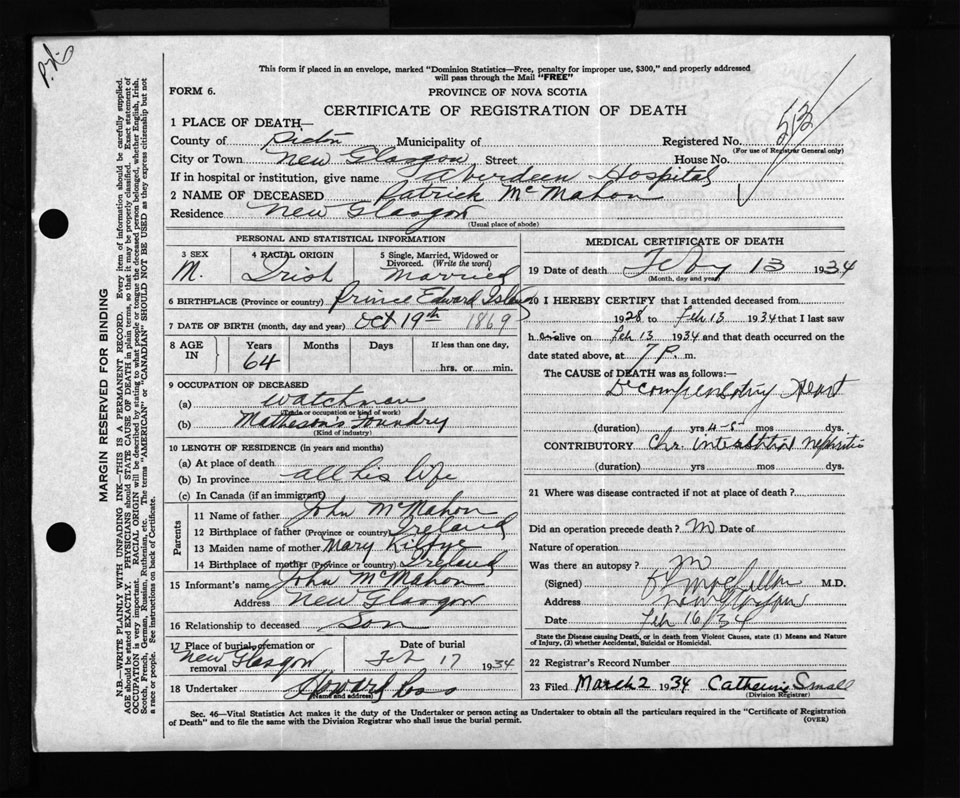 P.N.G
This form if placed in an envelope, marked "Dominion Statistics—Free, penalty for improper use, $300," and properly addressed
will pass through the Mail "FREE"
FORM 6.
PROVINCE OF NOVA SCOTIA
CERTIFICATE OF REGISTRATION OF DEATH
1 PLACE OF DEATH—
County of Pictou Municipality of Registered No. 513
(For use of Registrar General only)
City or Town New Glasgow Street House No.
If in hospital or institution, give name Aberdeen Hospital
2 NAME OF DECEASED Patrick McMahon
Residence New Glasgow
(Usual place of abode)
PERSONAL AND STATISTICAL INFORMATION
3 SEX 4 RACIAL ORIGIN 5 Single, Married, Widowed or Divorced. (Write the word)
M. Irish Married
6 BIRTHPLACE (Province or country) Prince Edward Island
7 DATE OF BIRTH (month, day and year) Oct 19th 1869
8 AGE IN Years Months Days If less than one day,
64 hrs. or min.
9 OCCUPATION OF DECEASED
(a) Watchman
(Trade or occupation or kind of work)
(b) Matheson's Foundry
(Kind of industry)
10 LENGTH OF RESIDENCE (in years and months)
(a) At place of death
(b) In province all his life
(c) In Canada (if an immigrant)
Parents
11 Name of father John McMahon
12 Birthplace of father (Province or country) Ireland
13 Maiden name of mother Mary
14 Birthplace of mother (Province or country) Ireland
15 Informant's name John McMahon
Address New Glasgow
16 Relationship to deceased Son
17 Place of burial, cremation or removal Date of burial
New Glasgow Feb 17 1934
18 Undertaker Howard Ross
(Name and address)
MEDICAL CERTIFICATE OF DEATH
19 Date of death Feby 13 1934
(Month, day and year)
20 I HEREBY CERTIFY that I attended deceased from
1928 to Feb 13 1934 that I last saw
h im alive on Feb 13 1934 and that death occurred on the
date stated above, at 7 P. m.
The CAUSE of DEATH was as follows:—
Decompensatory Heart
(duration) yrs 4-5 mos dys.
CONTRIBUTORY Chr. interstitial nephritis
(duration) yrs mos dys.
21 Where was disease contracted if not at place of death?
Did an operation precede death? no Date of
Nature of operation
Was there an autopsy? no
(Signed) M.D.
Address New Glasgow
Date Feb 16/34
State the Disease causing Death, or in death from Violent Causes, state (1) Means and Nature
of Injury, (2) whether Accidental, Suicidal or Homicidal.
22 Registrar's Record Number
23 Filed March 2 1934 Catherine Small
(Division Registrar)
Sec. 46—Vital Statistics Act makes it the duty of the Undertaker or person acting as Undertaker to obtain all the particulars required in the "Certificate of Registration
of Death" and to file the same with the Division Registrar who shall issue the burial permit. (OVER)
MARGIN RESERVED FOR BINDING
N.B.—WRITE PLAINLY WITH UNFADING INK—THIS IS A PERMANENT RECORD. Every item of information should be carefully supplied.
AGE should be stated EXACTLY. PHYSICIANS should STATE CAUSE OF DEATH in plain terms, so that it may be properly classified. Exact statement of
OCCUPATION is very important. RACIAL ORIGIN will be described by stating to what people or tongue the deceased person belonged, whether English, Irish,
Scotch, French, German, Russian, Ruthenian, etc. The terms "AMERICAN" or "CANADIAN" SHOULD NOT BE USED as they express citizenship but not
a race or people. See instructions on back of Certificate.